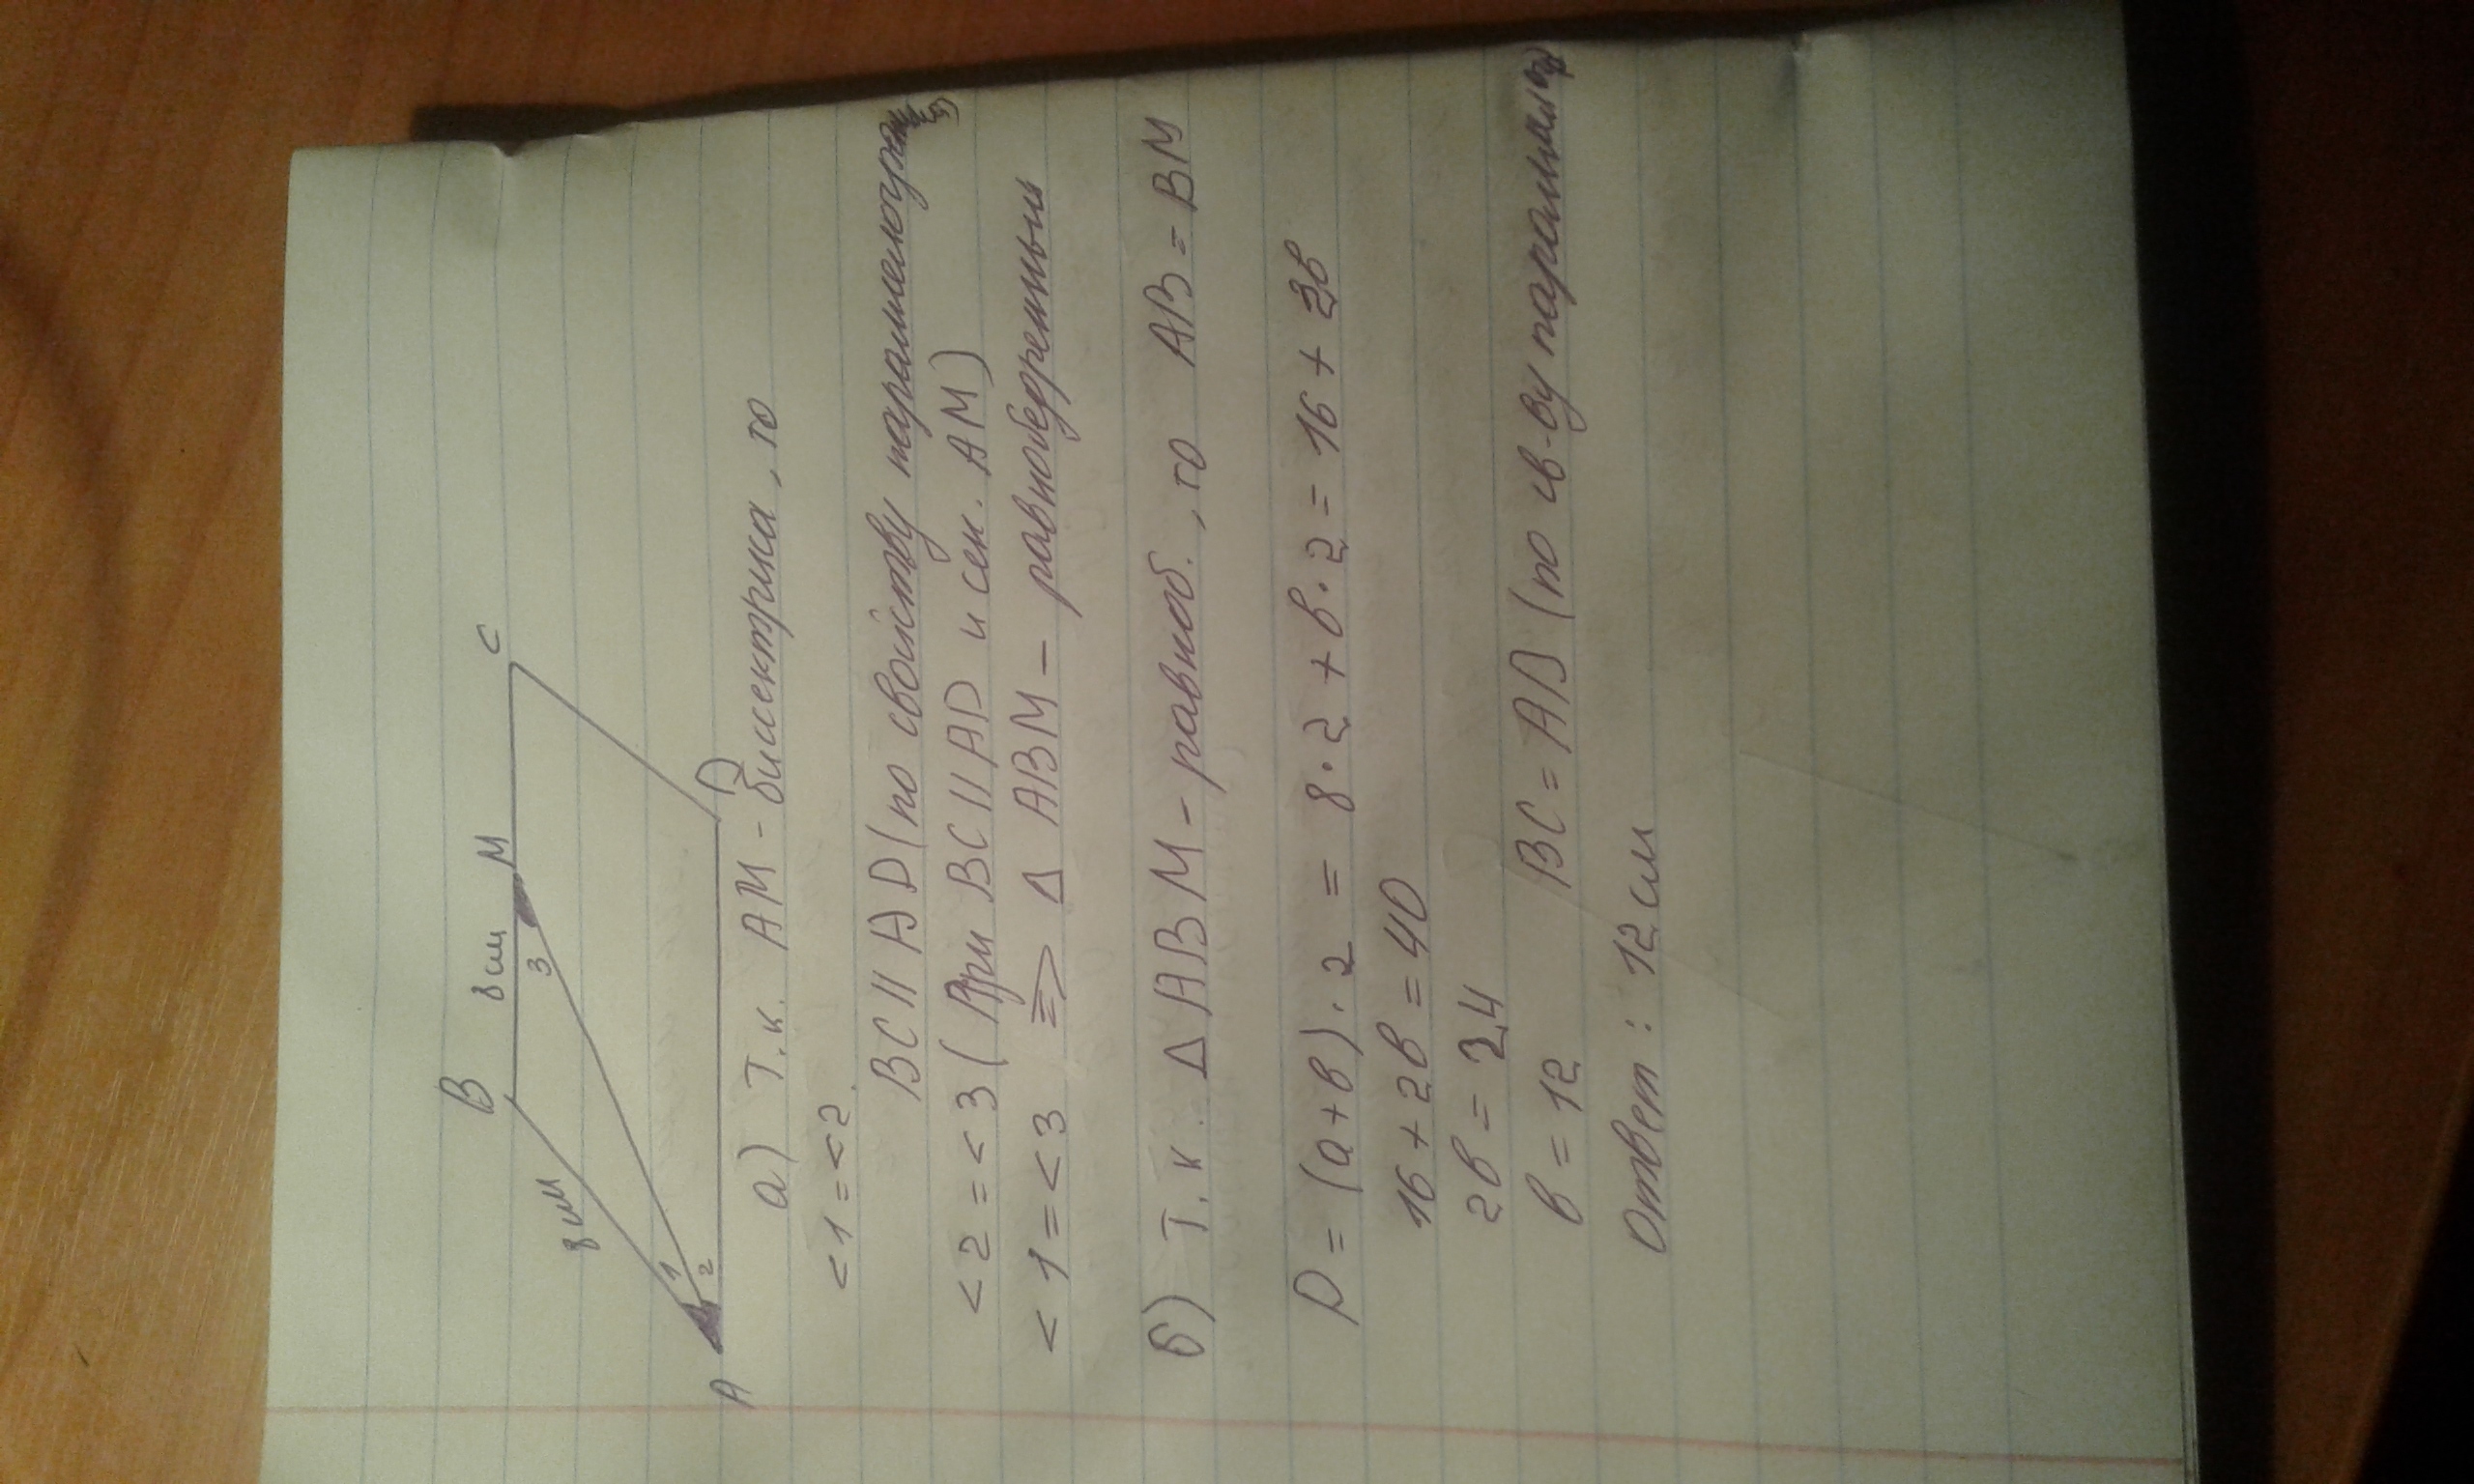 B 8 см M C
8 см
3
1
2
A D
а) Т.к. AM - биссектриса, то
<1 = <2.
BC || AD (по свойству
<2 = <3 (При BC || AD и сек. AM)
<1 = <3 => Δ ABM - равнобедренный
б) Т.к. Δ ABM - равноб., то AB = BM
P = (a+b)·2 = 8·2 + b·2 = 16 + 2b
16 + 2b = 40
2b = 24
b = 12 BC = AD (по св-ву
Ответ: 12 см